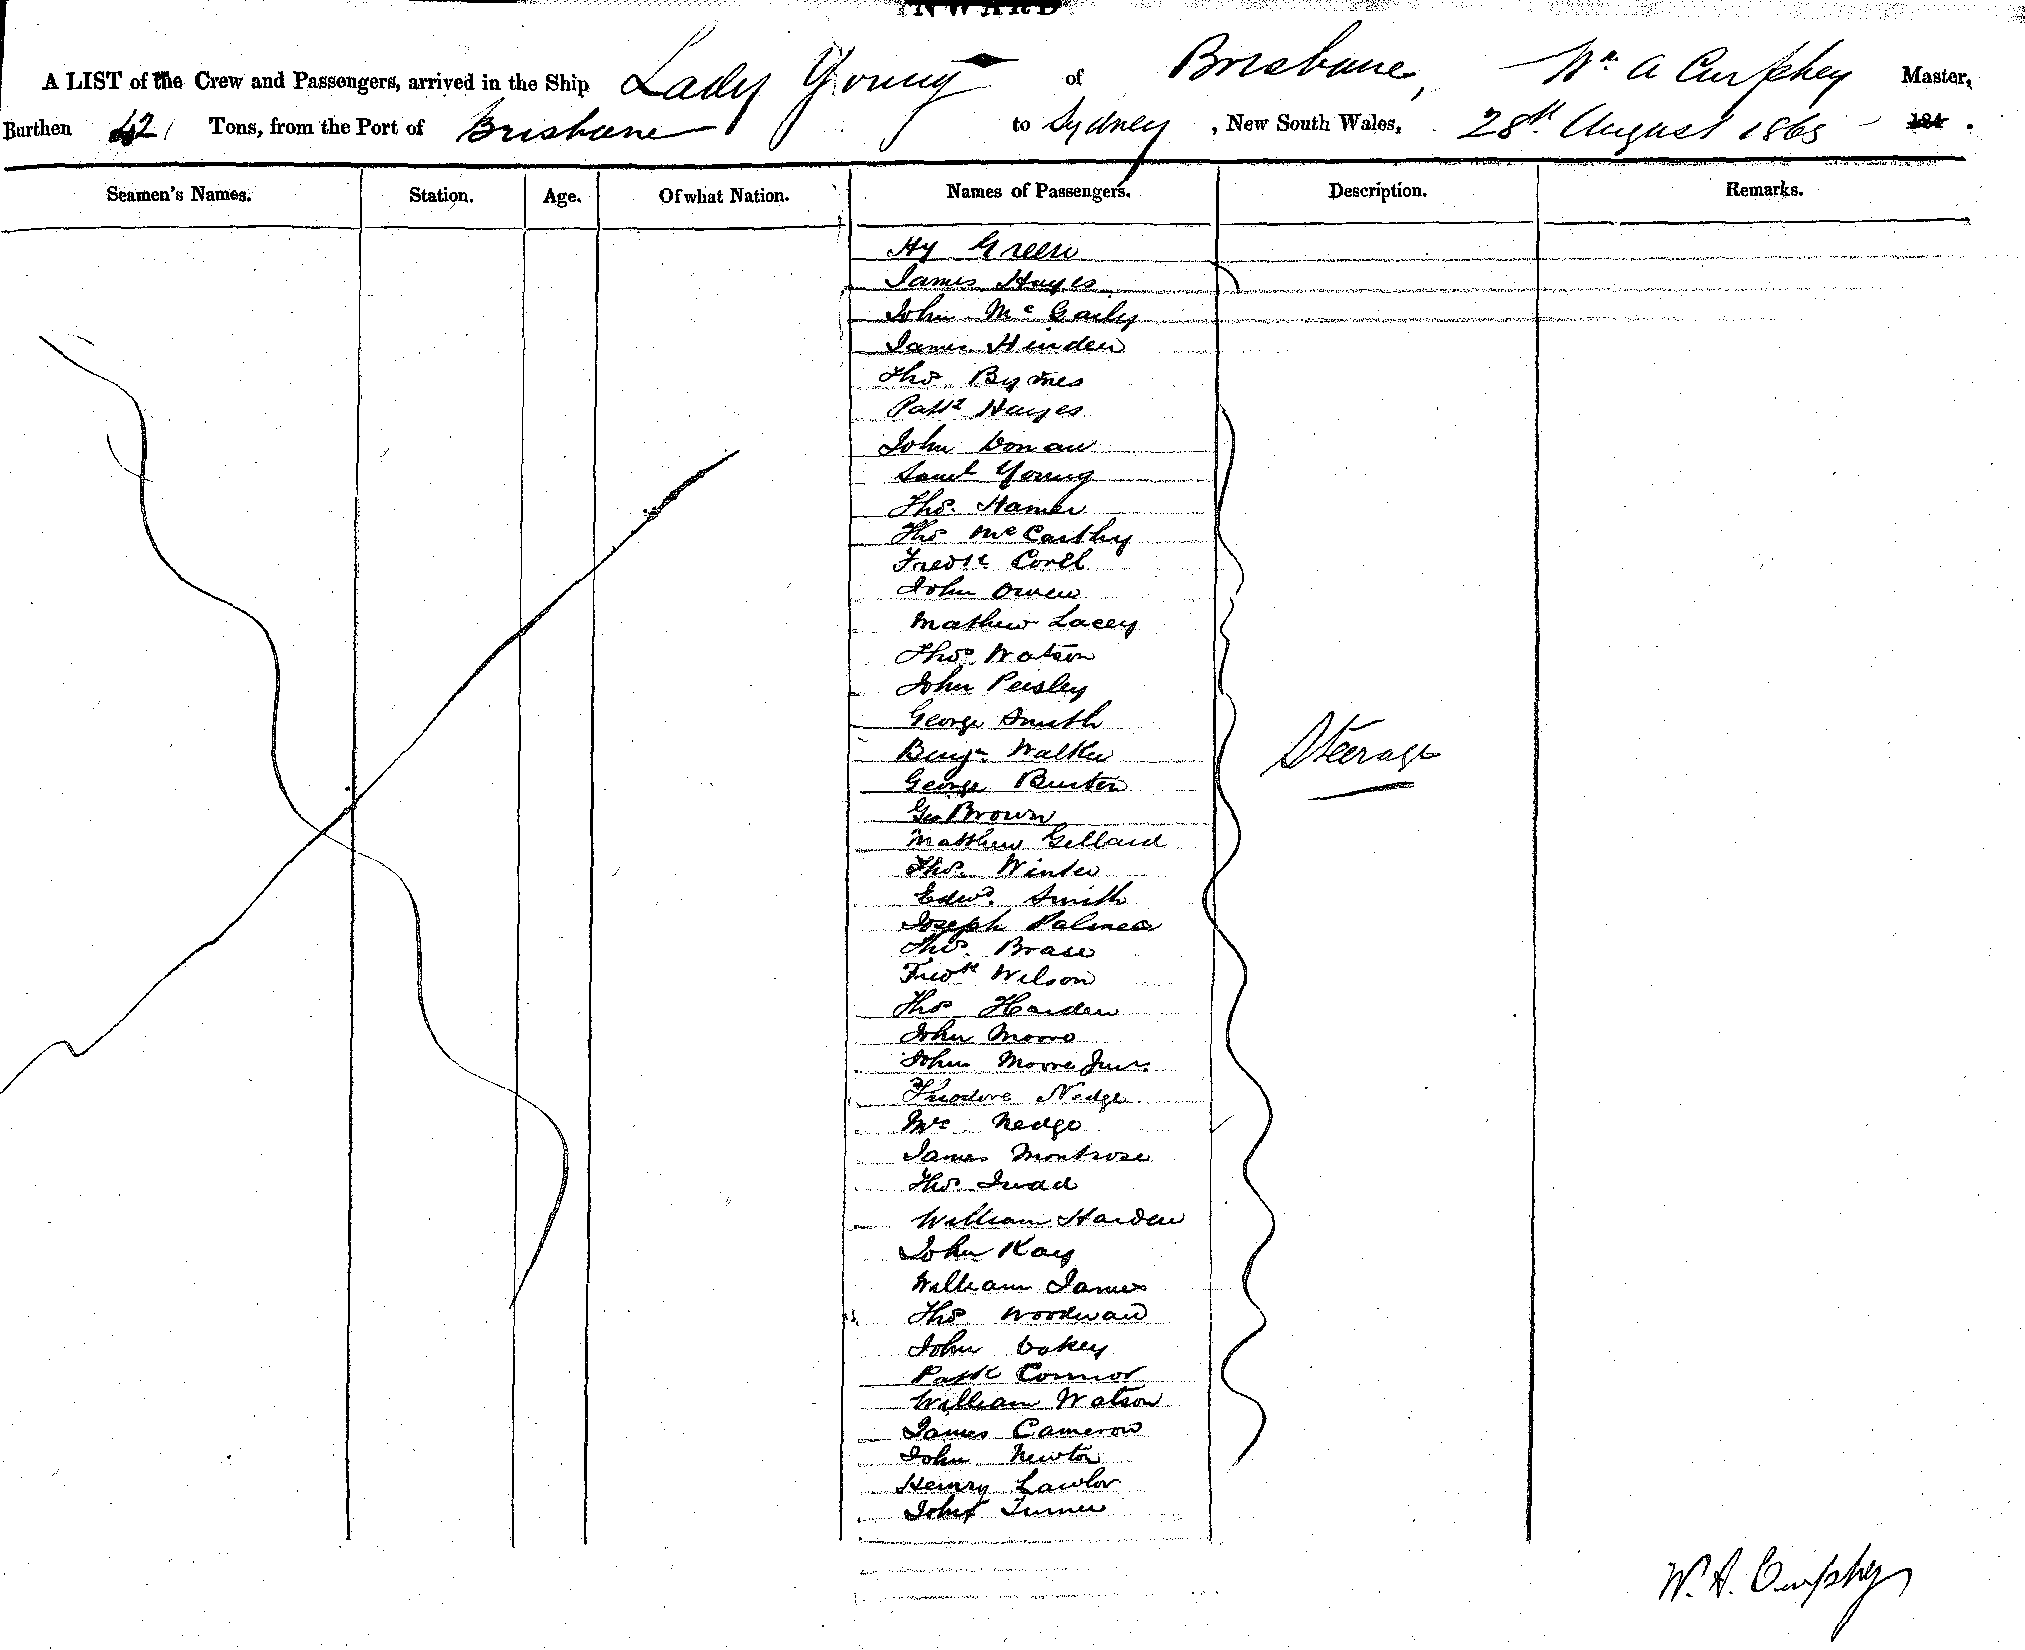 INWARD
A LIST of the Crew and Passengers, arrived in the Ship Lady Young of Brisbane, Wm A Curphey Master,
Burthen 421 Tons, from the Port of Brisbane to Sydney, New South Wales, 28th August 1865
Seamen's Names. Station. Age. Of what Nation. Names of Passengers. Description. Remarks.
Hy Green
James Hayes
John McGaily
James Hinden
Thos Byrnes
Patk Hayes
John Donan
Saml Young
Thos Hamer
Thos McCarthy
Fredk Corll
John Owen
Mathew Lacey
Thos Watson
John Peisley
George Smith
Steerage
Benjn Walker
George Burton
Geo Brown
Matthew Gellard
Thos Winter
Edwd Smith
Joseph Palmer
Thos Brase
Fredk Wilson
Thos Harden
John Moore
John Moore Junr
Theodore Nedge
Mrs Nedge
James Montrose
Thos
William Harden
John Kay
William James
Thos Woodward
John Oakey
Patk Connor
William Watson
James Cameron
John Newton
Henry Lawlor
John Turner
W. A. Curphey